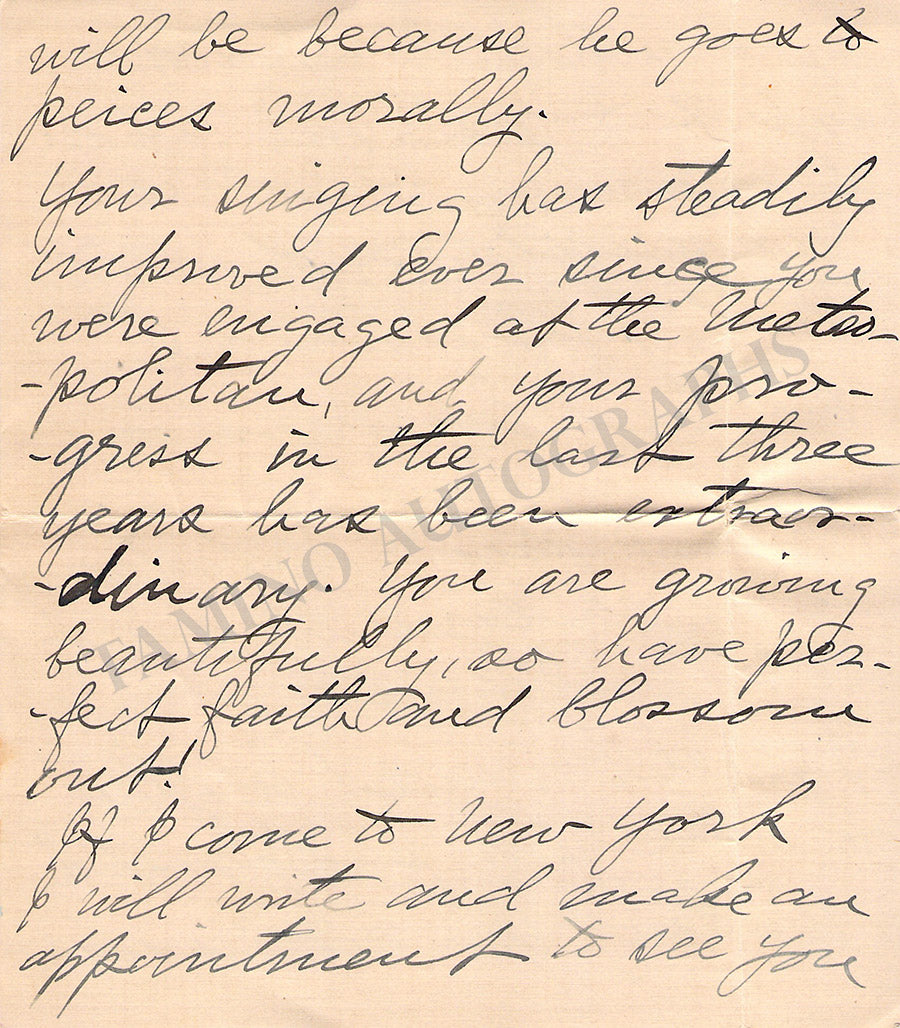 will be because he goes to
peices morally.
Your singing has steadily
improved ever since you
were engaged at the Metro-
-politan, and your pro-
-gress in the last three
years has been extraor-
-dinary. You are growing
beautifully, so have per-
-fect faith and blossom
out!
If I come to New York
I will write and make an
appointment to see you
TAMINO AUTOGRAPHS